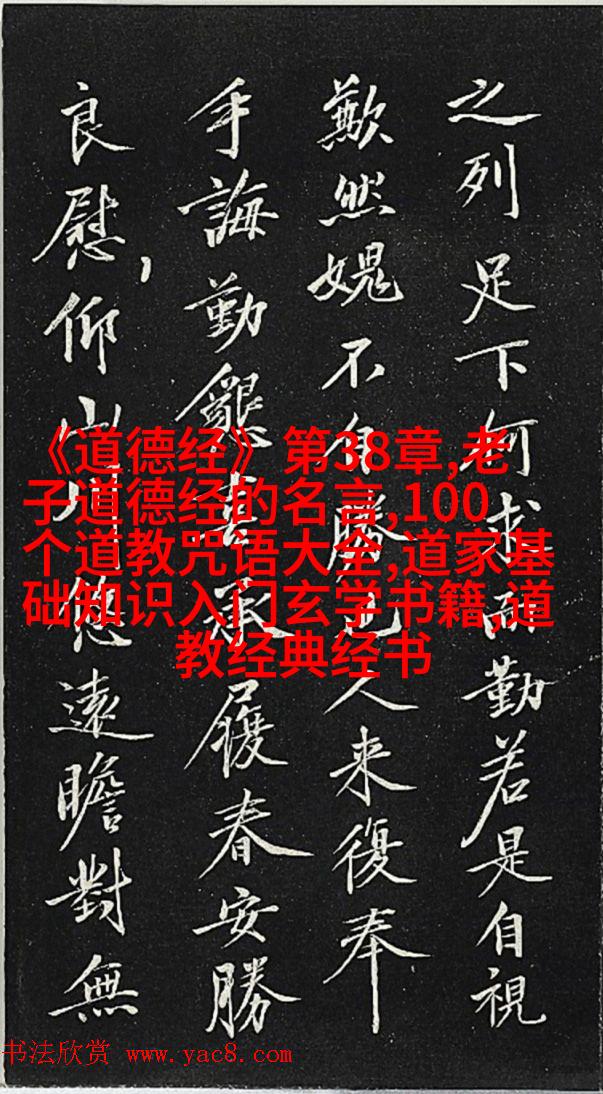 之列足下何求而勤若是自視
歉然媿不自勝也人来復奉
手誨勤懇喜承履春安勝
良慰，仰山川悠遠瞻對無
《道德经》第38章,老
子道德经的名言,100
个道教咒语大全,道家基
础知识入门玄学书籍,道
教经典经书
书法欣赏 www.yac8.com